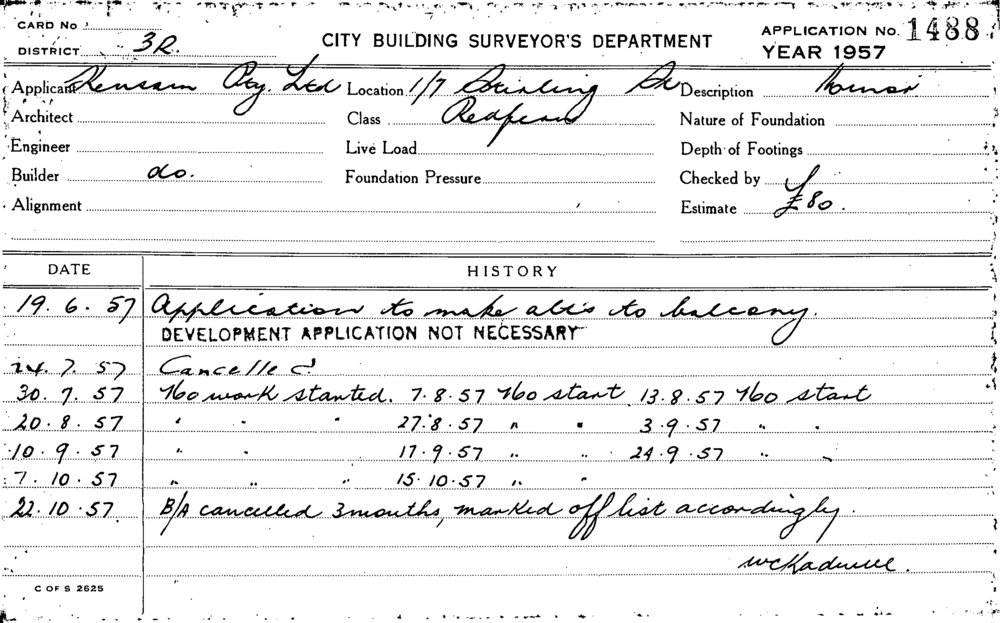 CARD No
DISTRICT 3R.
CITY BUILDING SURVEYOR'S DEPARTMENT
APPLICATION No. 1488
YEAR 1957
Applicant Pty. Ltd Location 1/7 Stirling St Description Minor
Architect Class Redfern Nature of Foundation
Engineer Live Load Depth of Footings
Builder do. Foundation Pressure Checked by
Alignment Estimate £80.
DATE HISTORY
19.6.57 Application to make alts to balcony.
DEVELOPMENT APPLICATION NOT NECESSARY
24.7.57 Cancelled
30.7.57 No work started. 7.8.57 No start 13.8.57 No start
20.8.57 " " " 27.8.57 " " 3.9.57 " "
10.9.57 " " 17.9.57 " " 24.9.57 " "
7.10.57 " " " 15.10.57 " "
22.10.57 B/A cancelled 3 months, marked off list accordingly.
C OF S 2625